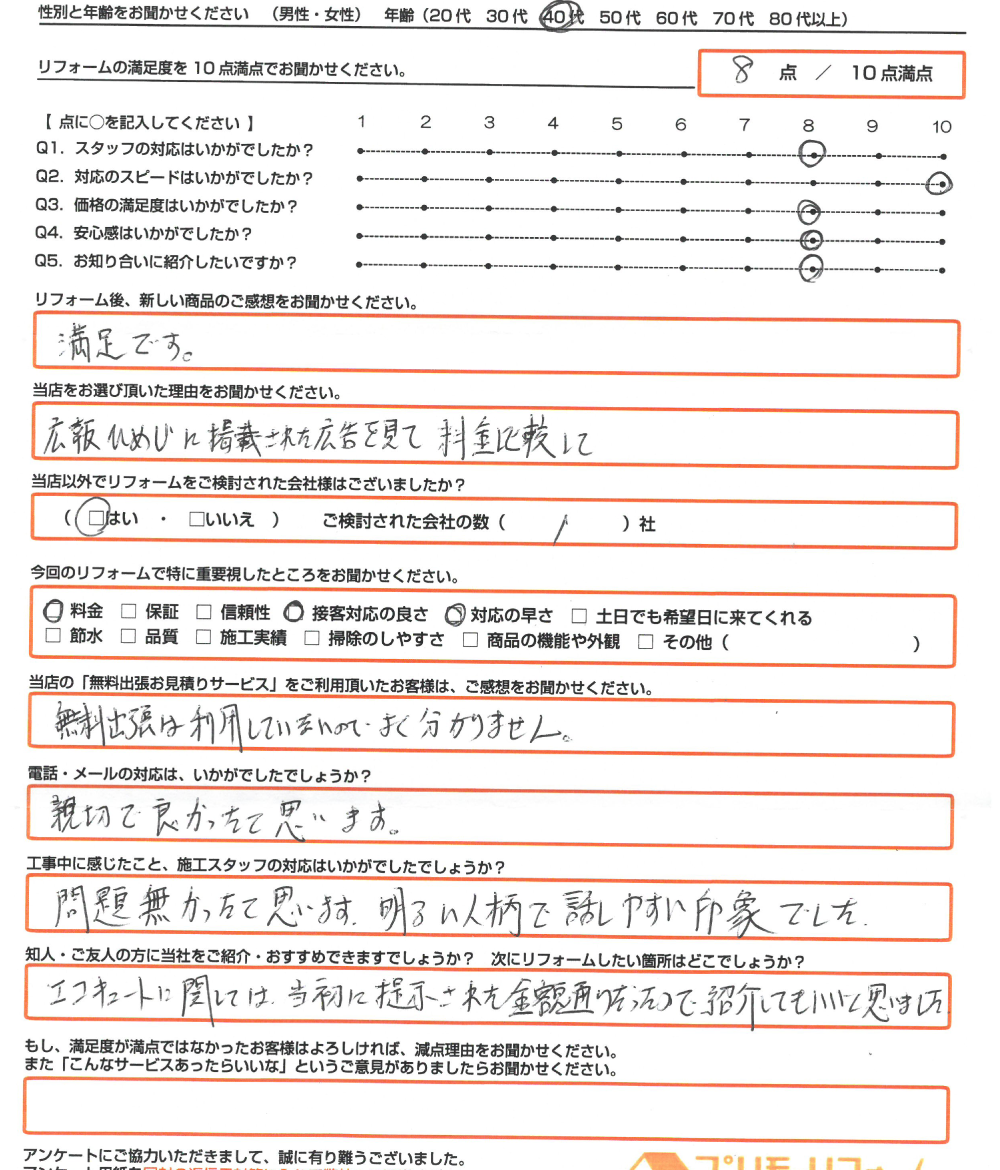 性別と年齢をお聞かせください （男性・女性） 年齢（20代 30代 40代 50代 60代 70代 80代以上）
リフォームの満足度を10点満点でお聞かせください。 8 点 ／ 10点満点
【 点に○を記入してください 】 1 2 3 4 5 6 7 8 9 10
Q1. スタッフの対応はいかがでしたか？
Q2. 対応のスピードはいかがでしたか？
Q3. 価格の満足度はいかがでしたか？
Q4. 安心感はいかがでしたか？
Q5. お知り合いに紹介したいですか？
リフォーム後、新しい商品のご感想をお聞かせください。
満足です。
当店をお選び頂いた理由をお聞かせください。
広報ひめじに掲載された広告を見て 料金比較して
当店以外でリフォームをご検討された会社様はございましたか？
（ □はい ・ □いいえ ） ご検討された会社の数（ 1 ）社
今回のリフォームで特に重要視したところをお聞かせください。
□ 料金 □ 保証 □ 信頼性 □ 接客対応の良さ □ 対応の早さ □ 土日でも希望日に来てくれる
□ 節水 □ 品質 □ 施工実績 □ 掃除のしやすさ □ 商品の機能や外観 □ その他（ ）
当店の「無料出張お見積りサービス」をご利用頂いたお客様は、ご感想をお聞かせください。
無料出張は利用していないので よく分かりません。
電話・メールの対応は、いかがでしたでしょうか？
親切で良かったと思います。
工事中に感じたこと、施工スタッフの対応はいかがでしたでしょうか？
問題無かったと思います。明るい人柄で話しやすい印象でした.
知人・ご友人の方に当社をご紹介・おすすめできますでしょうか？ 次にリフォームしたい箇所はどこでしょうか？
エコキュートに関しては、当初に提示された金額通りだったので紹介してもいいと思いました
もし、満足度が満点ではなかったお客様はよろしければ、減点理由をお聞かせください。
また「こんなサービスあったらいいな」というご意見がありましたらお聞かせください。
アンケートにご協力いただきまして、誠に有り難うございました。